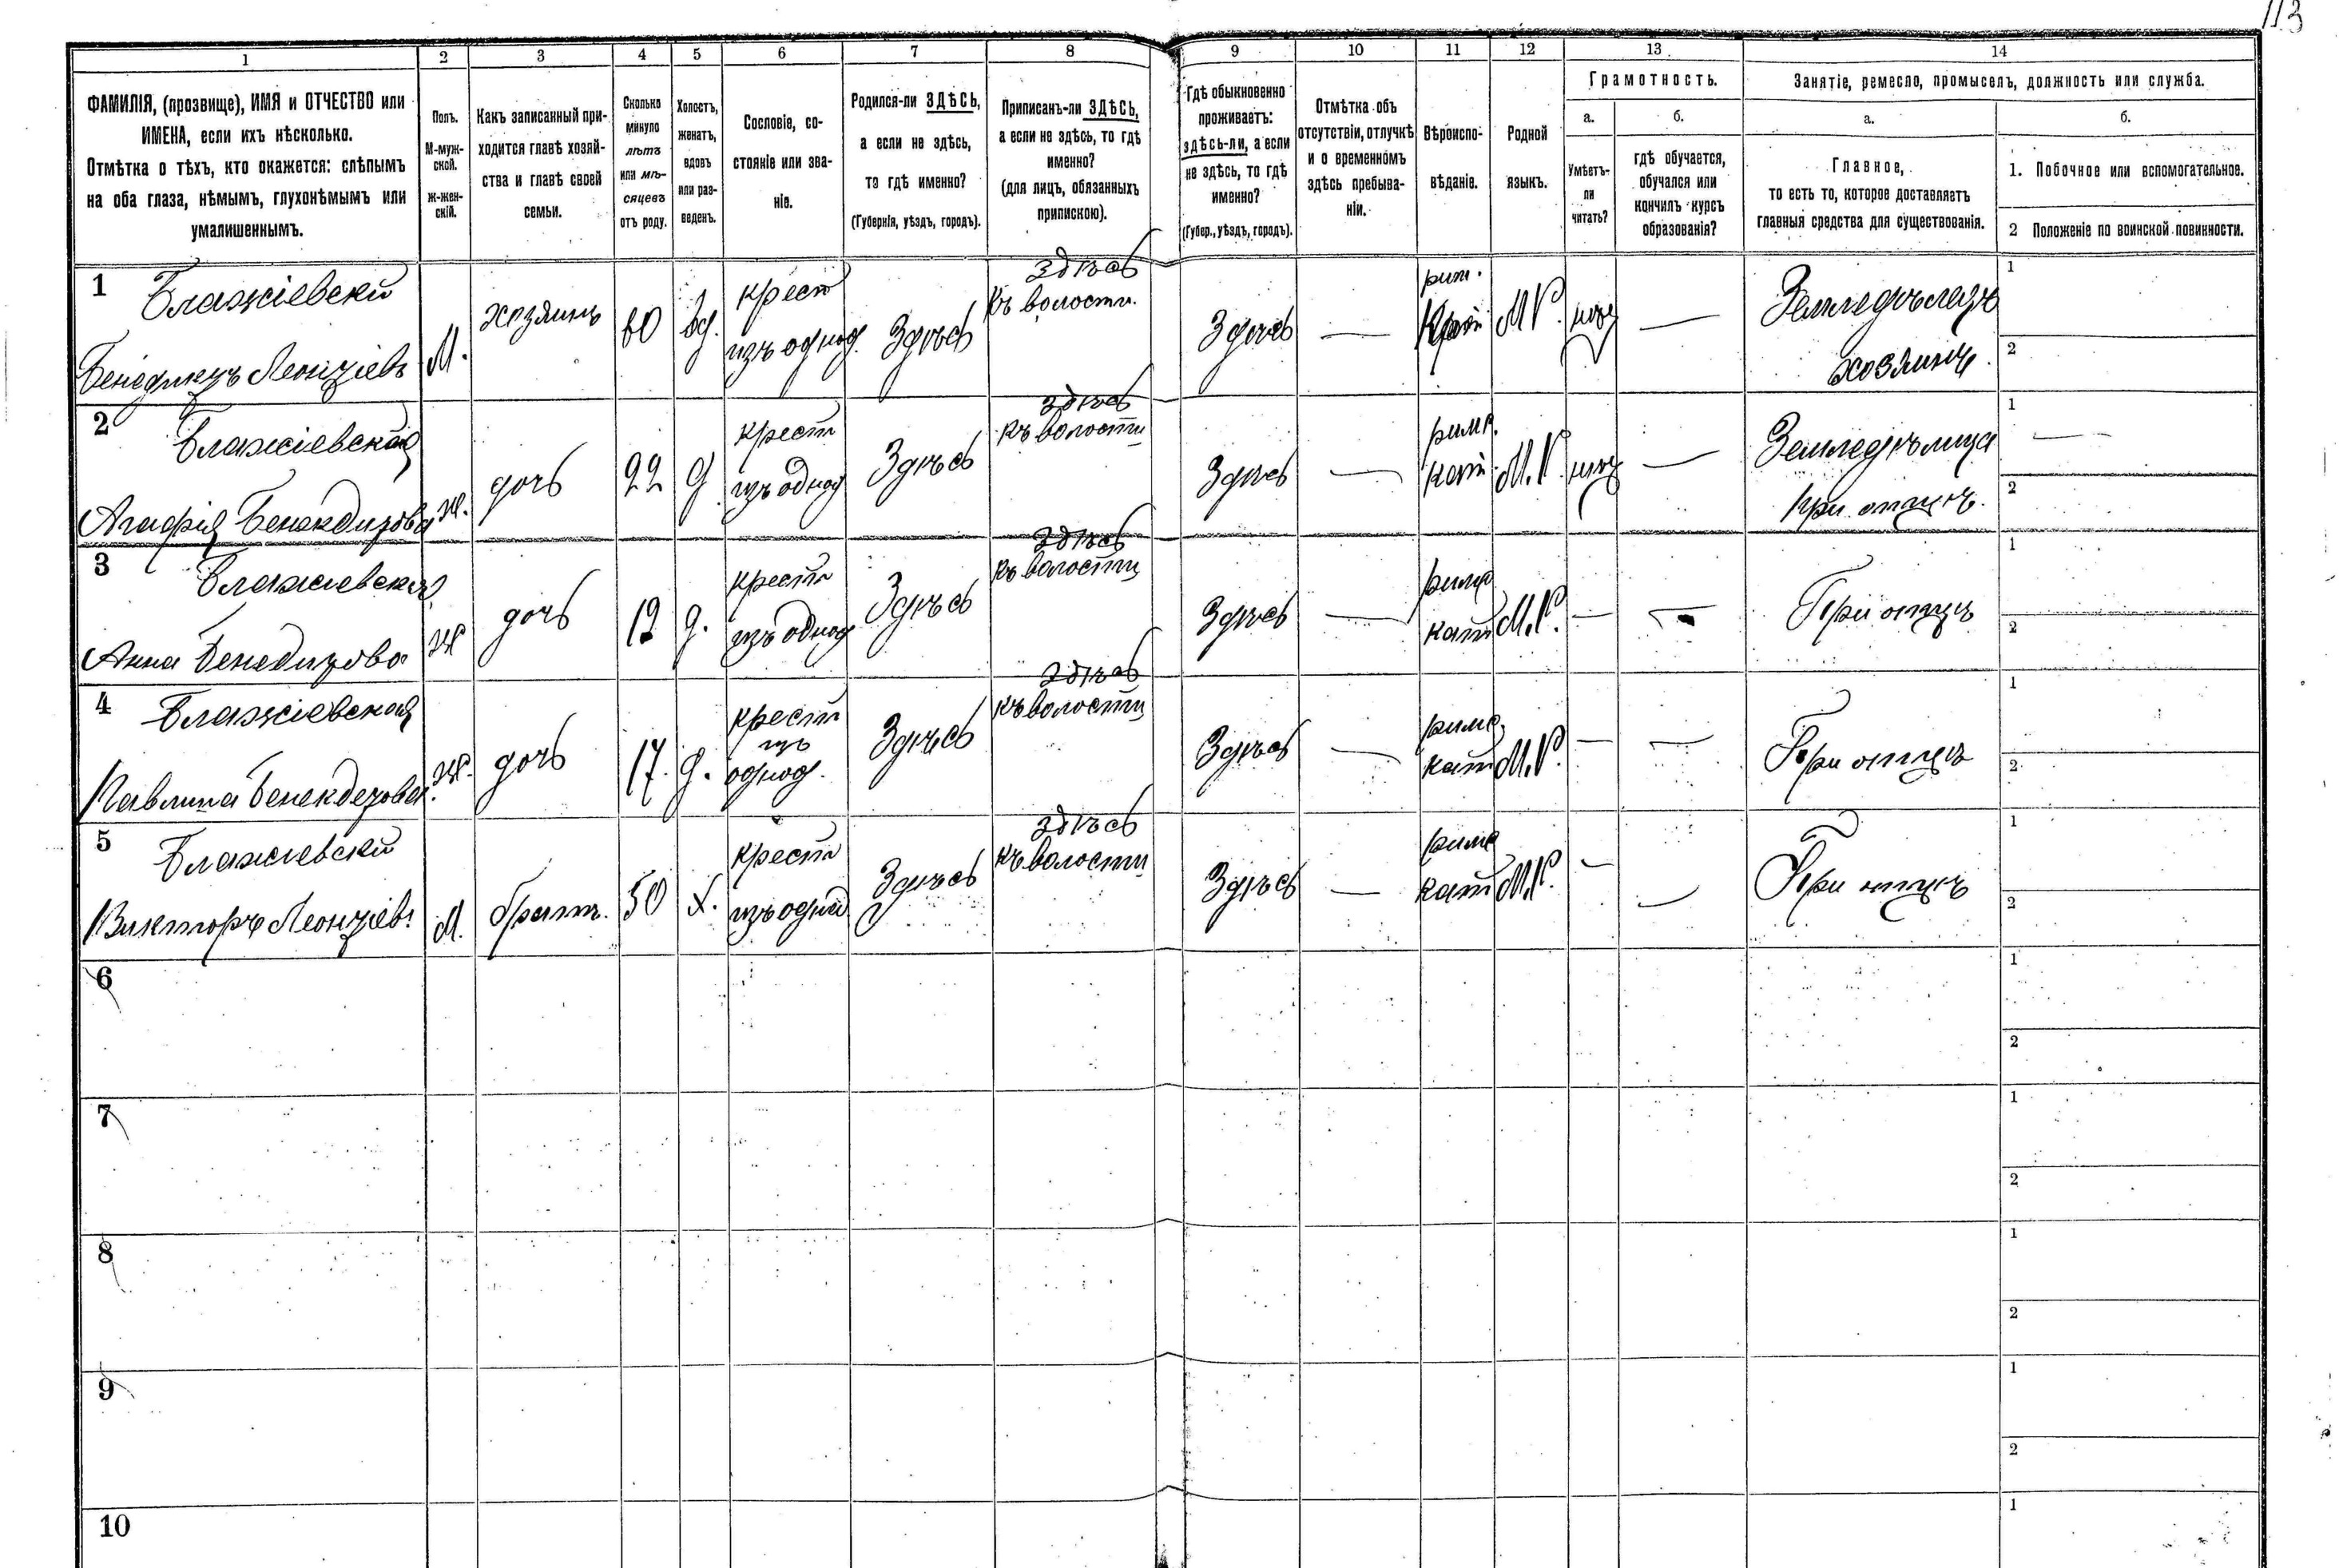 113
1 2 3 4 5 6 7 8 9 10 11 12 13 14
ФАМИЛІЯ, (прозвище), ИМЯ и ОТЧЕСТВО или
ИМЕНА, если ихъ нѣсколько.
Отмѣтка о тѣхъ, кто окажется: слѣпымъ
на оба глаза, нѣмымъ, глухонѣмымъ или
умалишеннымъ.
Полъ.
М-муж-
ской.
ж-жен-
скій.
Какъ записанный при-
ходится главѣ хозяй-
ства и главѣ своей
семьи.
Сколько
минуло
лѣтъ
или мѣ-
сяцевъ
отъ роду.
Холостъ,
женатъ,
вдовъ
или раз-
веденъ.
Сословіе, со-
стояніе или зва-
ніе.
Родился-ли ЗДѢСЬ,
а если не здѣсь,
то гдѣ именно?
(Губернія, уѣздъ, городъ).
Приписанъ-ли ЗДѢСЬ,
а если не здѣсь, то гдѣ
именно?
(для лицъ, обязанныхъ
припискою).
Гдѣ обыкновенно
проживаетъ:
здѣсь-ли, а если
не здѣсь, то гдѣ
именно?
(Губер., уѣздъ, городъ).
Отмѣтка объ
отсутствіи, отлучкѣ
и о временномъ
здѣсь пребыва-
ніи.
Вѣроиспо-
вѣданіе.
Родной
языкъ.
Грамотность.
а.
Умѣетъ-
ли
читать?
б.
гдѣ обучается,
обучался или
кончилъ курсъ
образованія?
Занятіе, ремесло, промыселъ, должность или служба.
а.
Главное,
то есть то, которое доставляетъ
главныя средства для существованія.
б.
1. Побочное или вспомогательное.
2 Положеніе по воинской повинности.
1 Блажіевскій
Бенедиктъ Леонтіевъ
М.
хозяинъ
60
вд.
крест
изъ однод.
Здѣсь
здѣсь
къ волости.
Здѣсь
—
рим.
Кат
М.Р.
—
Земледѣлецъ
хозяинъ
1
2
2 Блажіевская
Агафія Бенедиктова
Ж.
дочь
22
д
крест
изъ однод
Здѣсь
здѣсь
къ волости
Здѣсь
—
римс.
кат.
М.Р.
—
Земледѣлица
при отцѣ.
1 —
2
3 Блажіевская
Анна Бенедиктова
Ж
дочь
19
д.
крест
изъ однод
Здѣсь
здѣсь
къ волости
Здѣсь
—
римс
кат
М.Р.
—
—
При отцѣ
1
2
4 Блажіевская
Павлина Бенедиктова
Ж.
дочь
17.
д.
крест
изъ
однод.
Здѣсь
здѣсь
къ волости
Здѣсь
—
римс.
кат
М.Р.
—
—
При отцѣ
1
2
5 Блажіевскій
Викторъ Леонтіев.
М.
братъ.
50
х.
крест
изъ однод
Здѣсь
здѣсь
къ волости
Здѣсь
—
римс
кат
М.Р.
—
—
При отцѣ
1
2
6
1
2
7
1
2
8
1
2
9
1
2
10
1